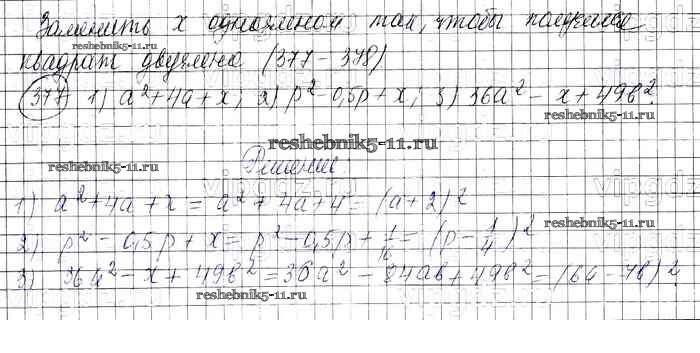 Заменить x одночленом так, чтобы получился
квадрат двучлена (377 – 378)
reshebnik5-11.ru
377 1) a² + 4a + x; 2) p² – 0,5p + x; 3) 36a² – x + 49в².
reshebnik5-11.ru
reshebnik5-11.ru reshebnik5-11.ru
Решение
1) a² + 4a + x = a² + 4a + 4 = (a + 2)²
reshebnik5-11.ru
2) p² – 0,5p + x = p² – 0,5p + 1/16 = (p – 1/4)²
3) 36a² – x + 49в² = 36a² – 84aв + 49в² = (6a – 7в)²
reshebnik5-11.ru